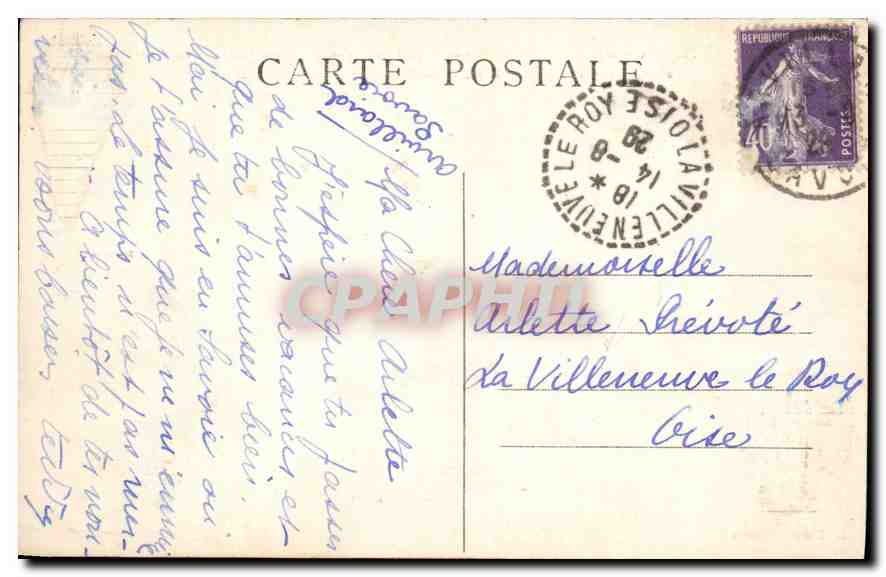 CARTE POSTALE
Arvillard
Savoie
Ma Chère Arlette
J'espère que tu passes
de bonnes vacances et
que tu t'amuses bien.
Moi je suis en Savoie ou
je t'assure que je ne m'ennuie
pas. Le temps n'est pas mer-
À bientôt de tes nou-
bons baisers
REPUBLIQUE FRANÇAISE
POSTES
40
LA VILLENEUVE LE ROY OISE
18 *
14 -8
29
Mademoiselle
Arlette Prévoté
La Villeneuve le Roy
Oise
CPAPHIL